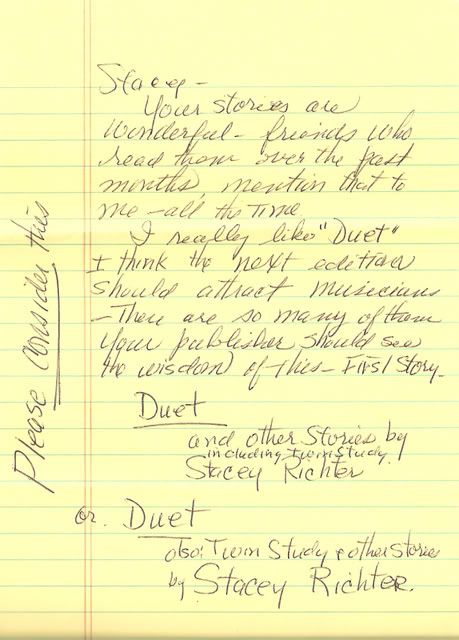 Stacey -
Your stories are
wonderful - friends who
read them over the past
months, mention that to
me - all the time
I really like "Duet"
I think the next edition
should attract musicians
- There are so many of them
your publisher should see
the wisdom of this - First Story.
Duet
and other Stories by
including Twin Study
Stacey Richter
or. Duet
also: Twin Study & other stories
by Stacey Richter.
Please consider this